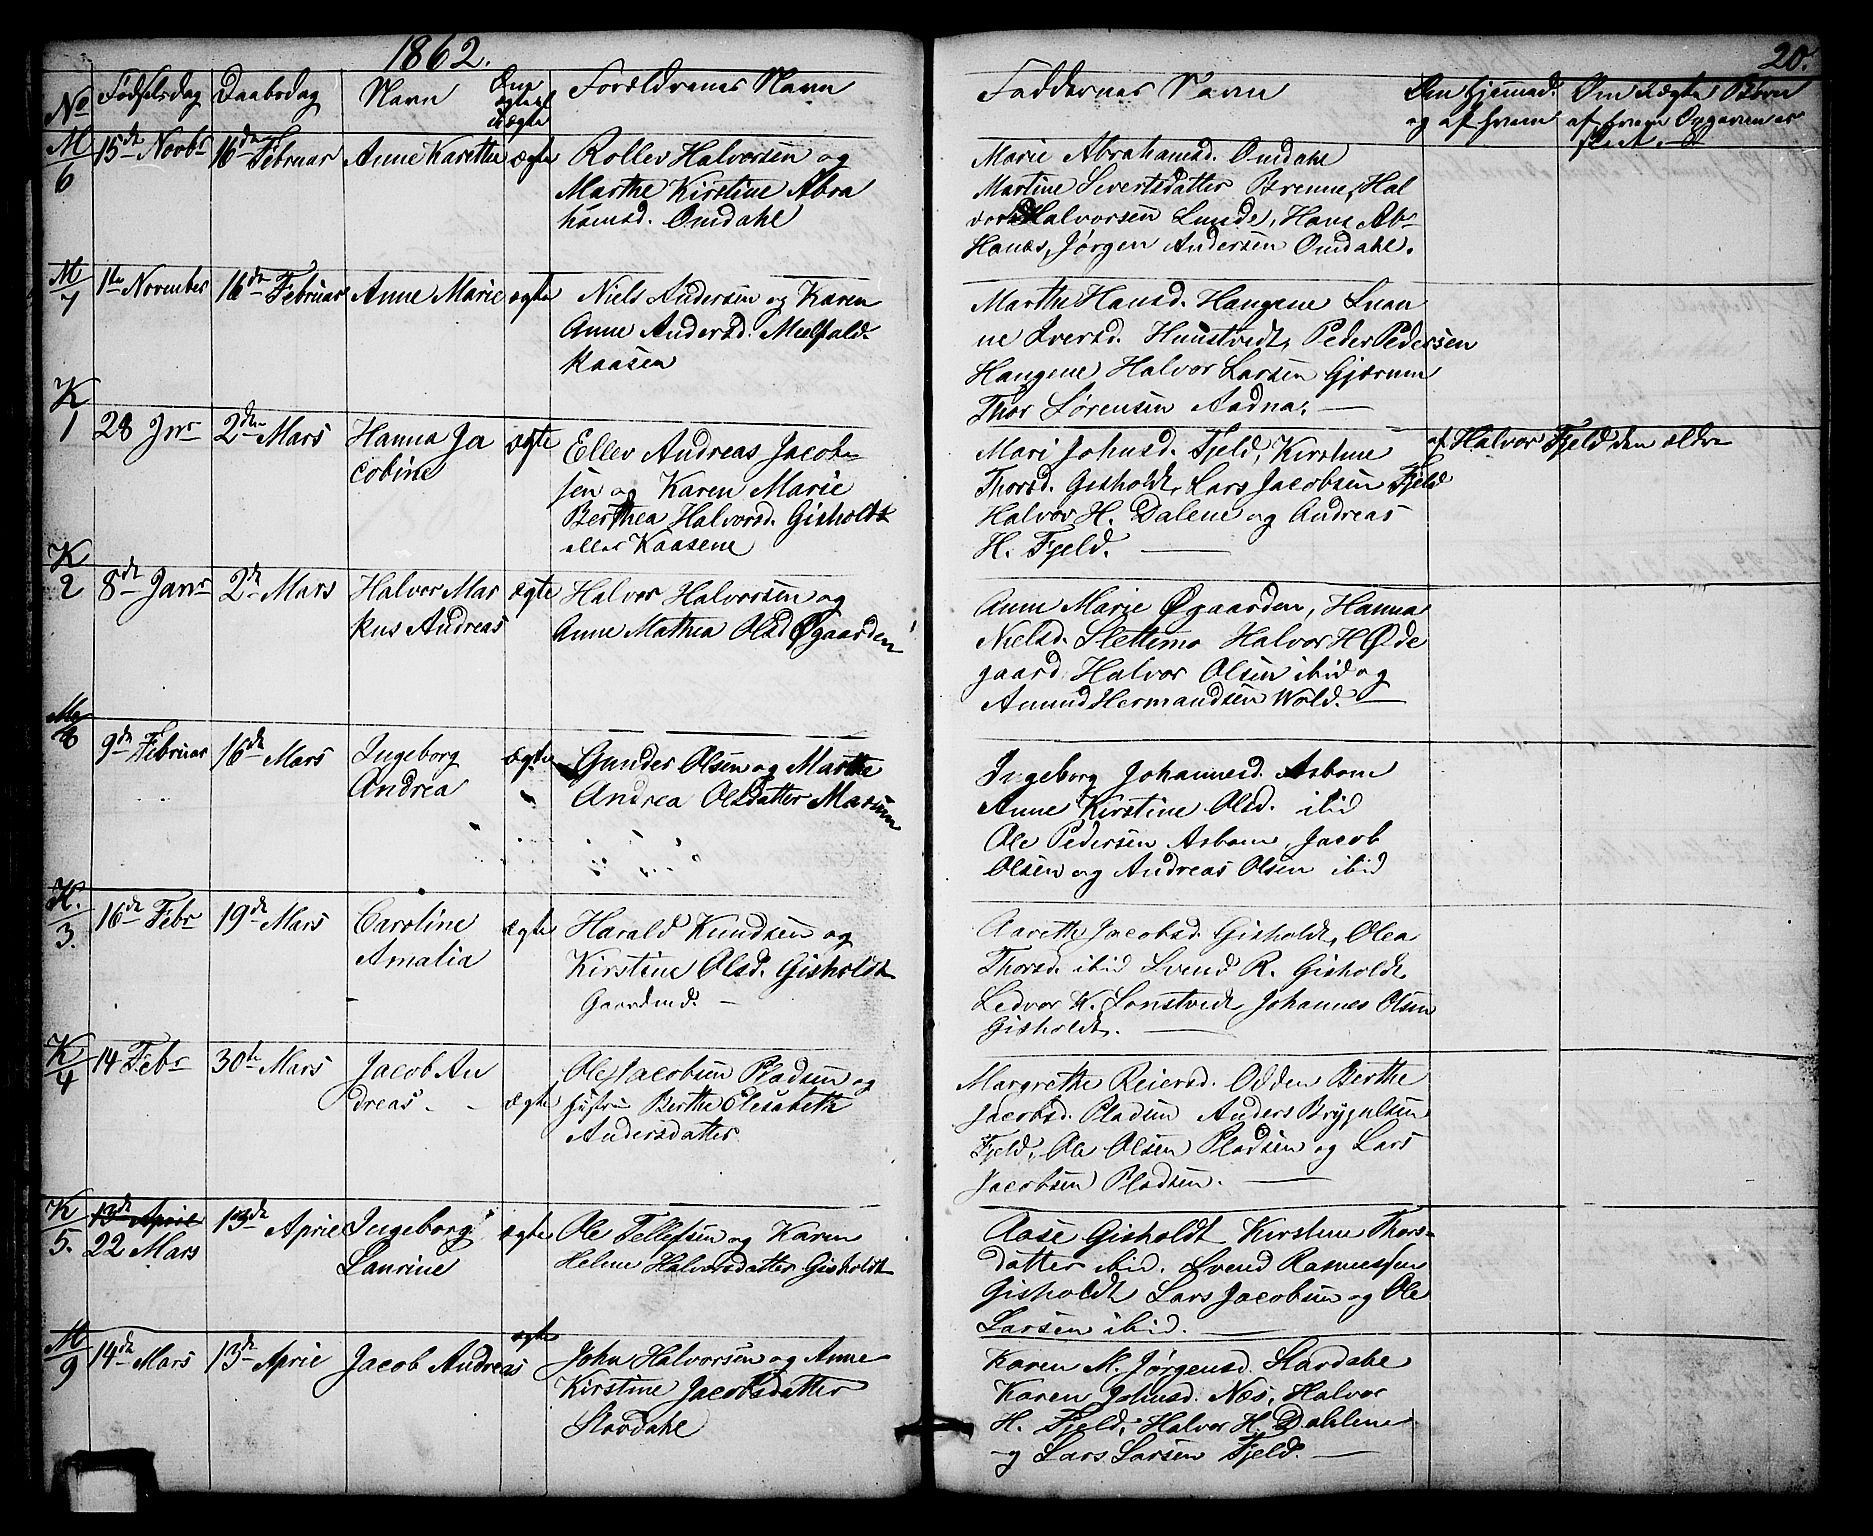 1862.
20.
No Fødselsdag Daabsdag Navn Om ægte el. uægte Forældrenes Navn
Faddernes Navn Om hjemmed. og af hvem Om uægte Børn af hvem Opgaven er
M/6 15de Novbr 16de Februar Anne Karethe ægte Rollev Halvorsen og
Marthe Kirstine Abra
hamsd. Omdahl
Marie Abrahamsd. Omdahl
Martine Sivertsdatter Brenne, Hal
vor Halvorsen Lunde, Hans Ab-
Hanæs, Jørgen Andersen Omdahl.
M/7 1te November 16de Februar Anne Marie ægte Niels Andersen og Karen
Anne Andersd. Melfald-
kaasen
Marthe Hansd. Haugene
ne Iversd. Huustvedt, Peder Pedersen
Haugene Halvor Larsen Gjærum
Thor Sørensen Aadna. —
K/1 28 Jnr 2den Mars Hanna Ja
cobine ægte Ellev Andreas Jacob-
sen og Karen Marie
Berthea Halvorsd. Gisholdt
eller Kaasene
Mari Johnsd. Fjeld, Kirstine
Thorsd. Gisholdt, Lars Jacobsen Fjeld
Halvor H. Dalene og Andreas
H. Fjeld. —
af Halvor Fjeld den ældre
K/2 8de Janr 2de Mars Halvor Mar
kus Andreas ægte Halvor Halvorsen og
Anne Mathea Olsd Øgaarden
Anne Marie Øgaarden, Hanna
Nielsd. Slettemo Halvor H Øde
gaard Halvor Olsen ibid og
Amund Hermandsen Wold. —
M/8 9de Februar 16de Mars Ingeborg
Andrea ægte Gunder Olsen og Marthe
Andrea Olsdatter Marum
Ingeborg Johannesd. Asbom
Anne Kirstine Olsd. ibid
Ole Pedersen Asbom, Jacob
Olsen og Andreas Olsen ibid
K./3. 16de Febr 19de Mars Caroline
Amalia ægte Harald Knudsen og
Kirstine Olsd. Gisholdt
Gaardmd. —
Aarethe Jacobsd. Gisholdt, Olea
Thorsd. ibid Svend R. Gisholdt
Ledvor K. Sonstvedt, Johannes Olsen
Gisholdt. —
K/4 14 Febr 30te Mars Jacob An
dreas ægte Ole Jacobsen Pladsen og
Hustru Berthe Elesabeth
Andersdatter
Margrethe Reiersd. Odden Berthe
Jacobsd. Pladsen Anders Brynnelsen
Fjeld, Ole Olsen Pladsen og Lars
Jacobsen Pladsen. —
K/5. 13de April
22 Mars 13de April Ingeborg
Laurine ægte Ole Tellefsen og Karen
Helene Halvorsdatter Gisholdt
Aase Gisholdt Kirstine Thors-
datter ibid. Svend Rasmussen
Gisholdt Lars Jacobsen og Ole
Larsen ibid. —
M/9 14de Mars 13de April Jacob Andreas ægte John Halvorsen og Anne
Kirstine Jacobsdatter
Stordahl
Karen M. Jørgensd. Stordahl
Karen Johnsd. Næs, Halvor
H. Fjeld, Halvor H. Dahlene
og Lars Larsen Fjeld. —